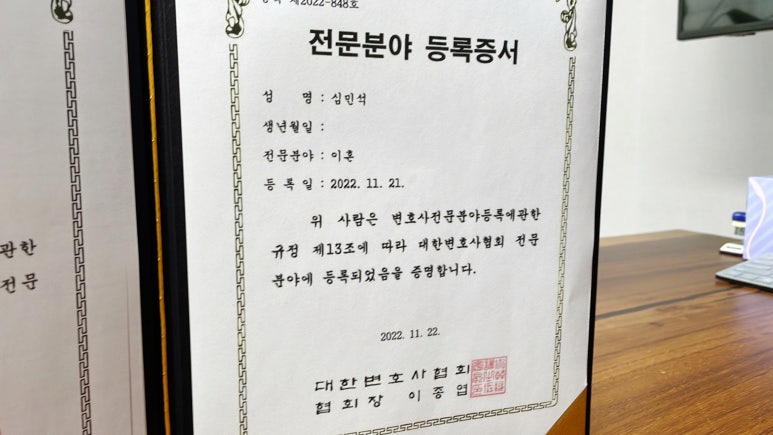 제2022-848호
전문분야 등록증서
성 명 : 심민석
생년월일 :
전문분야 : 이혼
등 록 일 : 2022. 11. 21.
위 사람은 변호사전문분야등록에관한
규정 제13조에 따라 대한변호사협회 전문
분야에 등록되었음을 증명합니다.
2022. 11. 22.
대한변호사협회
협회장 이종엽
관한
전문